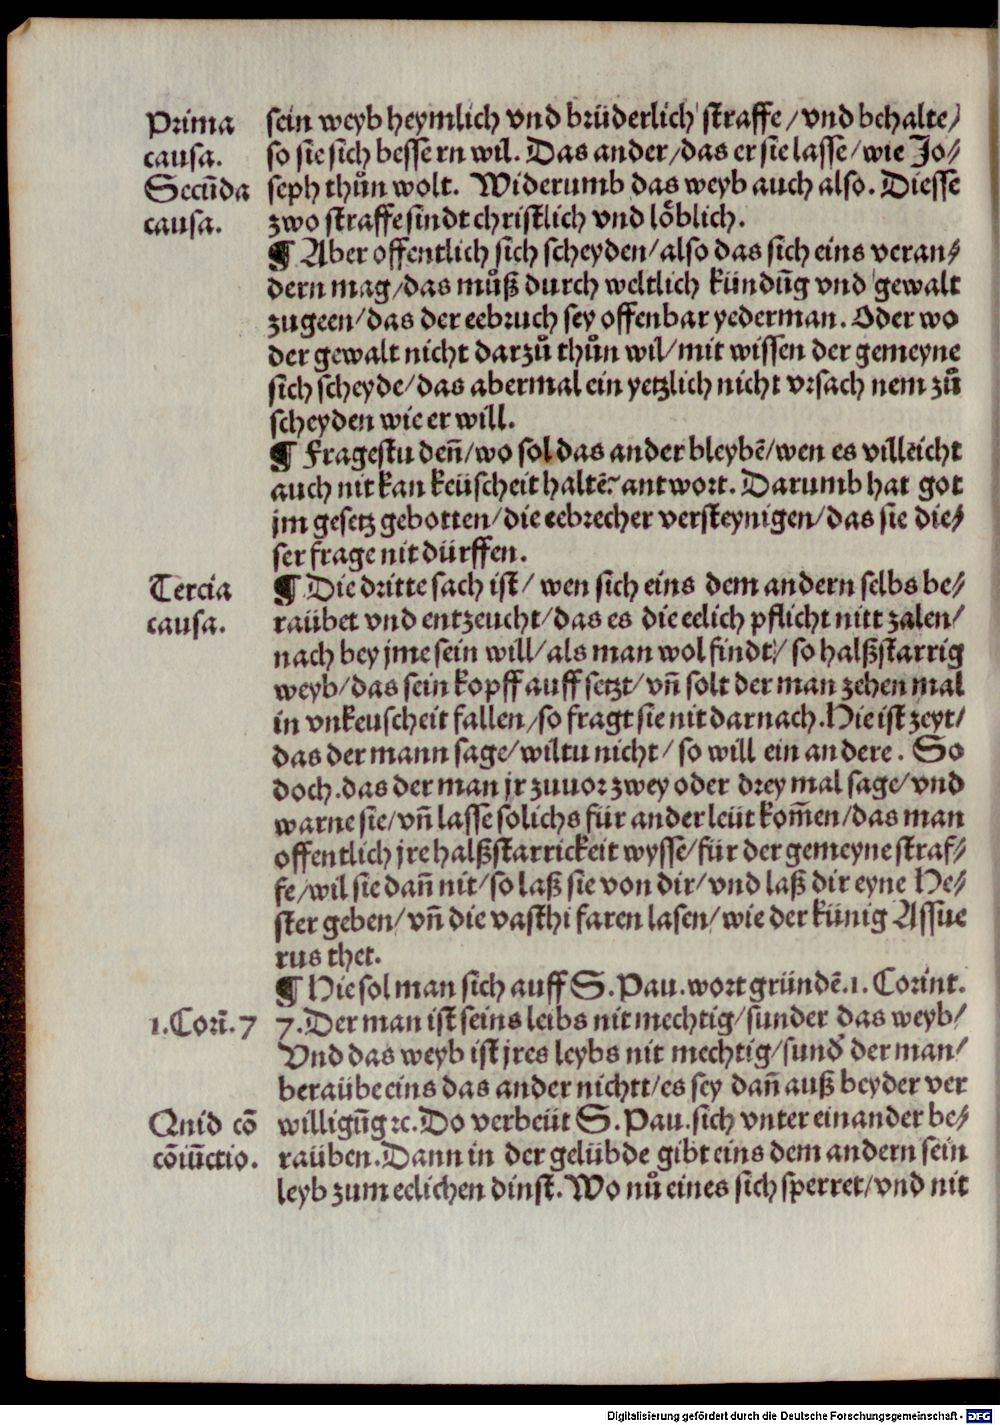 Prima
causa.
Secūda
causa.
sein weyb heymlich vnd brüderlich straffe/vnd behalte/
so sie sich besse rn wil. Das ander/das er sie lasse/wie Jo/
seph thůn wolt. Widerumb das weyb auch also. Diesse
zwo straffe sindt christlich vnd lôblich.
¶ Aber offentlich sich scheyden/also das sich eins veran/
dern mag/das můß durch weltlich kündūg vnd gewalt
zugeen/das der eebruch sey offenbar yederman. Oder wo
der gewalt nicht darzů thůn wil/mit wissen der gemeyne
sich scheyde/das abermal ein yetzlich nicht vrsach nem zů
scheyden wie er will.
¶ Fragestu deñ/wo sol das ander bleybē/wen es villeicht
auch nit kan keüscheit haltē? antwort. Darumb hat got
jm gesetz gebotten/die eebrecher versteynigen/das sie die/
ser frage nit dürffen.
Tercia
causa.
¶ Die dritte sach ist/ wen sich eins dem andern selbs be/
raübet vnd entzeucht/das es die eelich pflicht nitt zalen/
nach bey jme sein will/als man wol findt/ so halßstarrig
weyb/das sein kopff auff setzt/vñ solt der man zehen mal
in vnkeuscheit fallen/so fragt sie nit darnach. Hie ist zeyt/
das der mann sage/wiltu nicht/ so will ein andere. So
doch.das der man jr zuuor zwey oder drey mal sage/vnd
warne sie/vñ lasse solichs für ander leüt kom̄en/das man
offentlich jre halßstarrickeit wysse/für der gemeyne straf/
fe/wil sie dañ nit/so laß sie von dir/vnd laß dir eyne He/
ster geben/vñ die vasthi faren lasen/wie der künig Assue
rus thet.
¶ Hie sol man sich auff S. Pau. wort gründē.1. Corint.
1.Cori̅. 7
7. Der man ist seins leibs nit mechtig/sunder das weyb/
Vnd das weyb ist jres leybs nit mechtig/sund' der man/
beraübe eins das ander nichtt/es sey dañ auß beyder ver
Quid cō
cōiūctio.
willigūg ⁊c. Do verbeüt S. Pau. sich vnter einander be/
raüben. Dann in der gelübde gibt eins dem andern sein
leyb zum eelichen dinst. Wo nů eines sich sperret/vnd nit
Digitalisierung gefördert durch die Deutsche Forschungsgemeinschaft - DFG